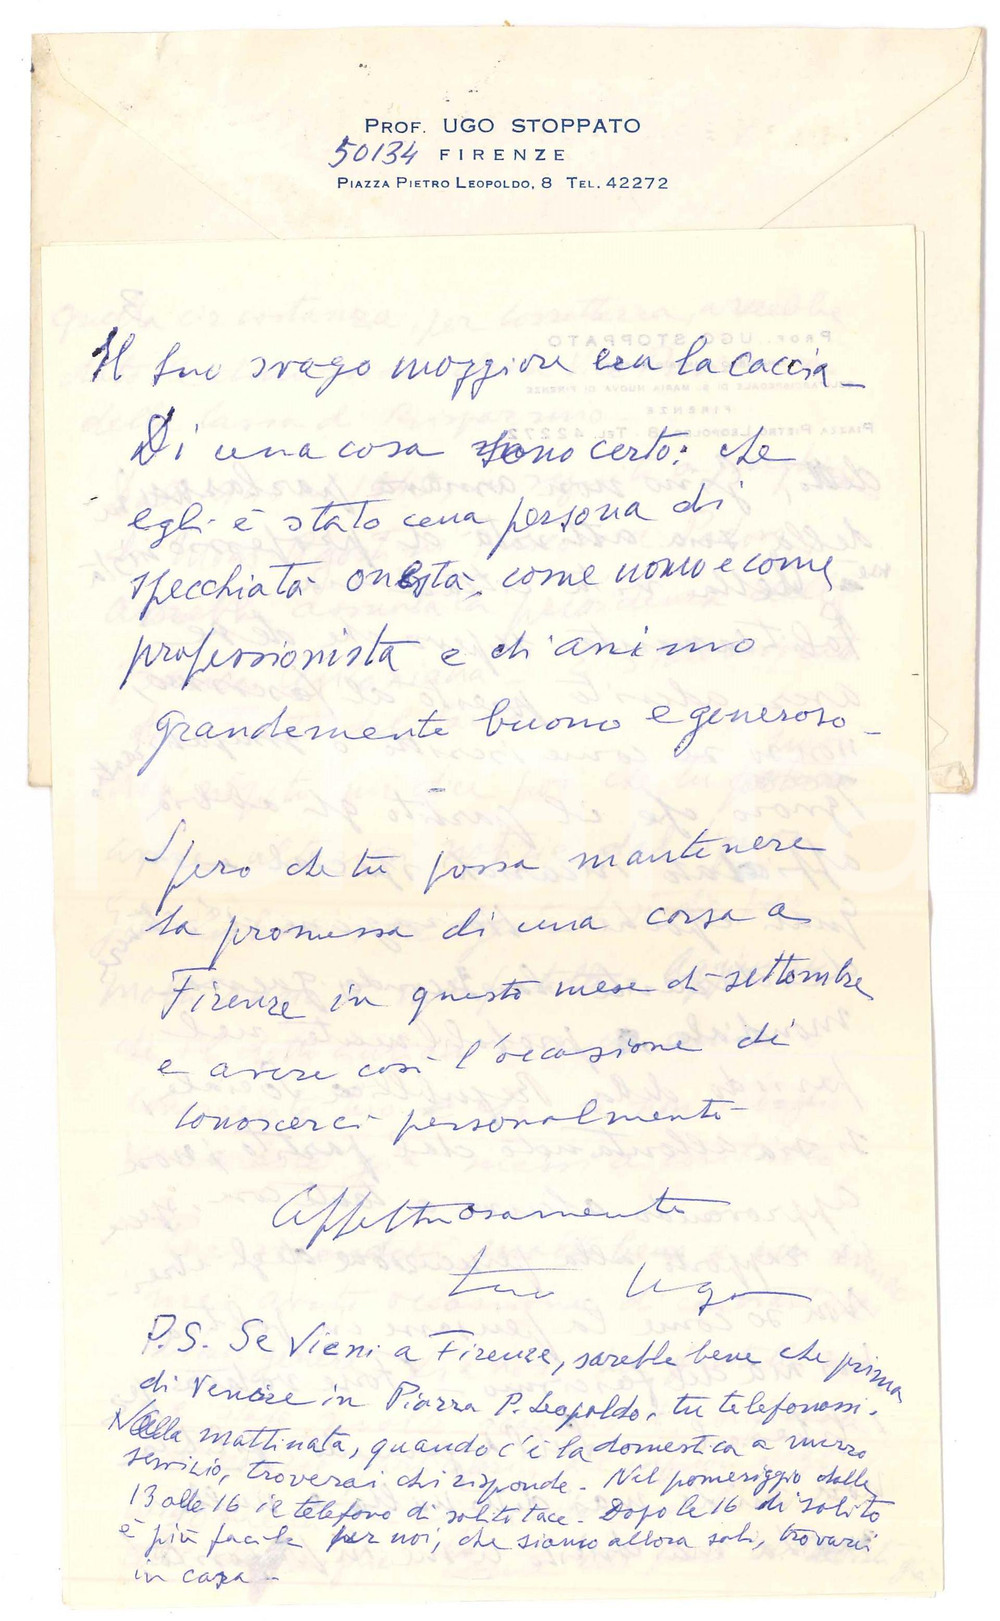 PROF. UGO STOPPATO
50134 FIRENZE
PIAZZA PIETRO LEOPOLDO, 8 TEL. 42272
Il suo svago maggiore era la caccia_
Di una cosa sono certo: che
egli è stato una persona di
specchiata onestà, come uomo e come
professionista e di animo
grandemente buono e generoso_
Spero che tu possa mantenere
la promessa di una corsa a
Firenze in questo mese di settembre
e avere così l'occasione di
conoscerci personalmente
Affettuosamente
tuo Ugo
P.S. Se vieni a Firenze, sarebbe bene che prima
di venire in Piazza P. Leopoldo, tu telefonassi.
Nella mattinata, quando c'è la domestica a mezzo
servizio, troverai chi risponde. Nel pomeriggio dalle
13 alle 16 il telefono di solito tace. Dopo le 16 di solito
è più facile per noi, che siamo allora soli, trovarci
in casa -